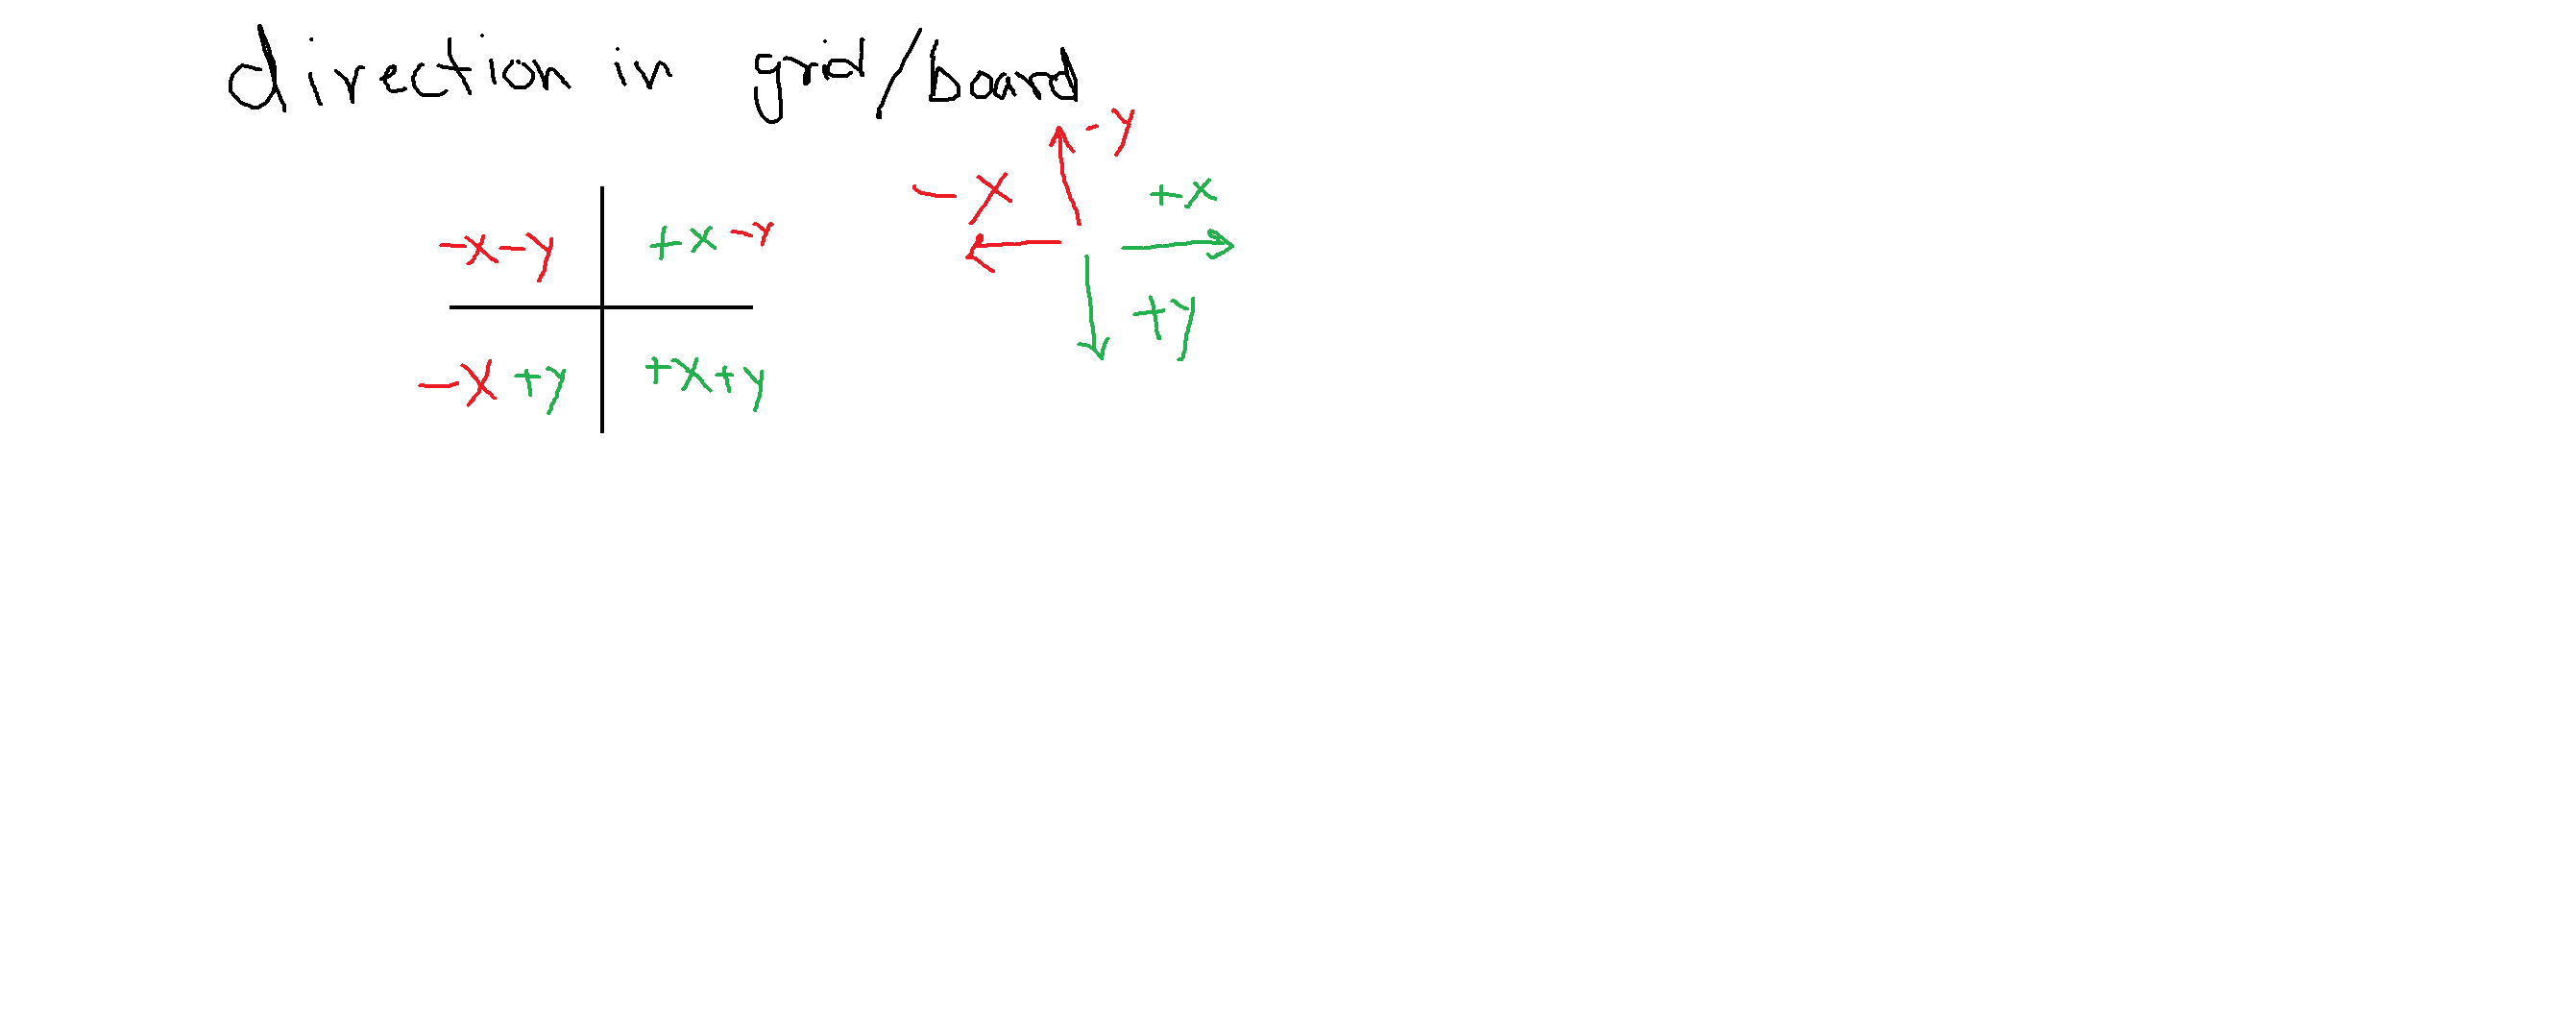 direction in grid/board
-y
-x
+x
-x-y
+x -y
+y
-x +y
+x+y